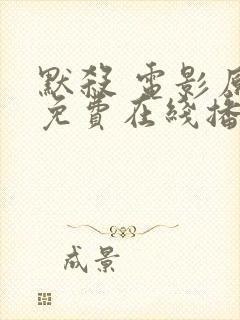 默殺 電影
免費在綫播
成景